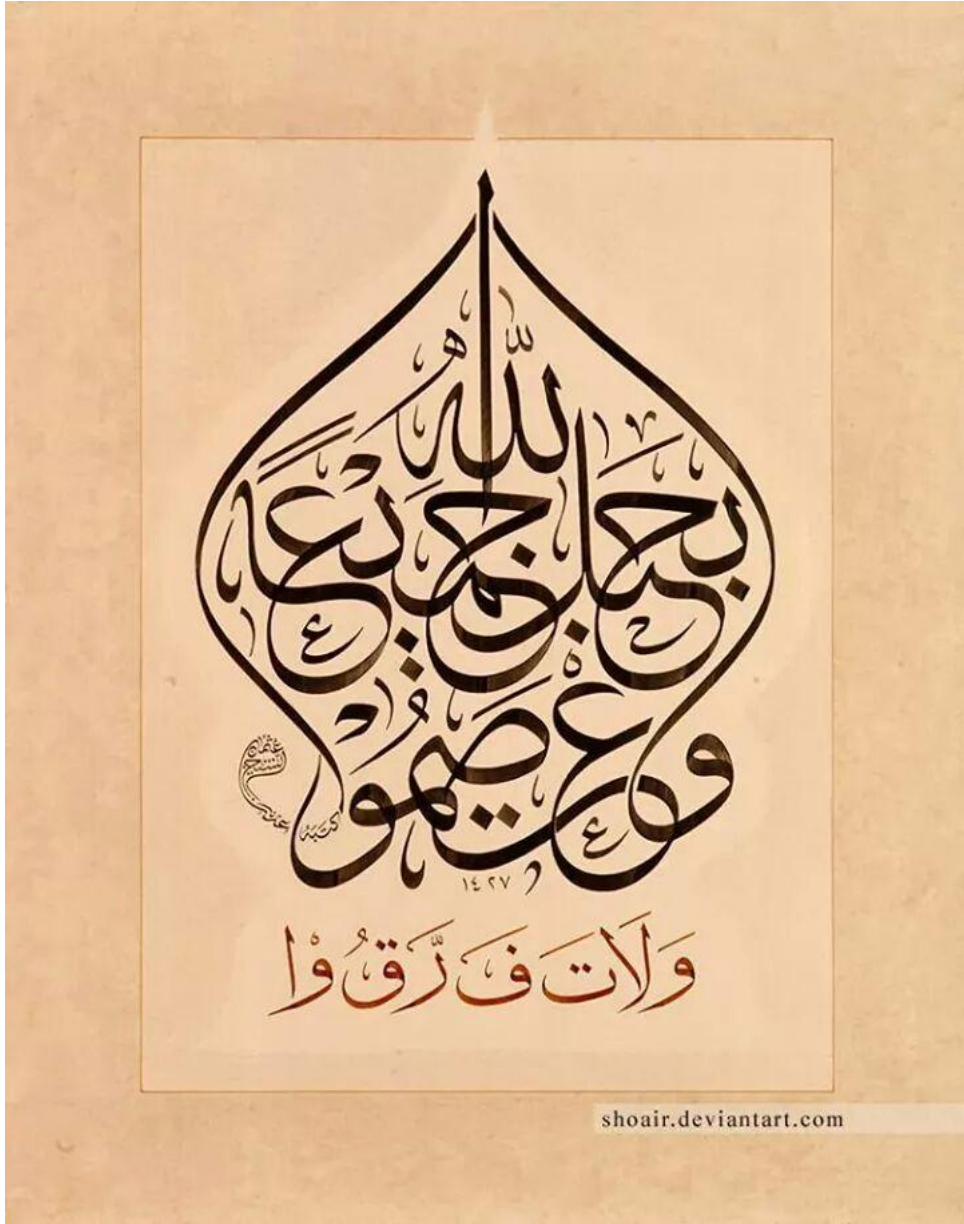 واعتصموا
بحبل الله جميعًا
١٤٢٧
كتبه
وَلَا تَ فَ رَّ قُ وْا
shoair.deviantart.com